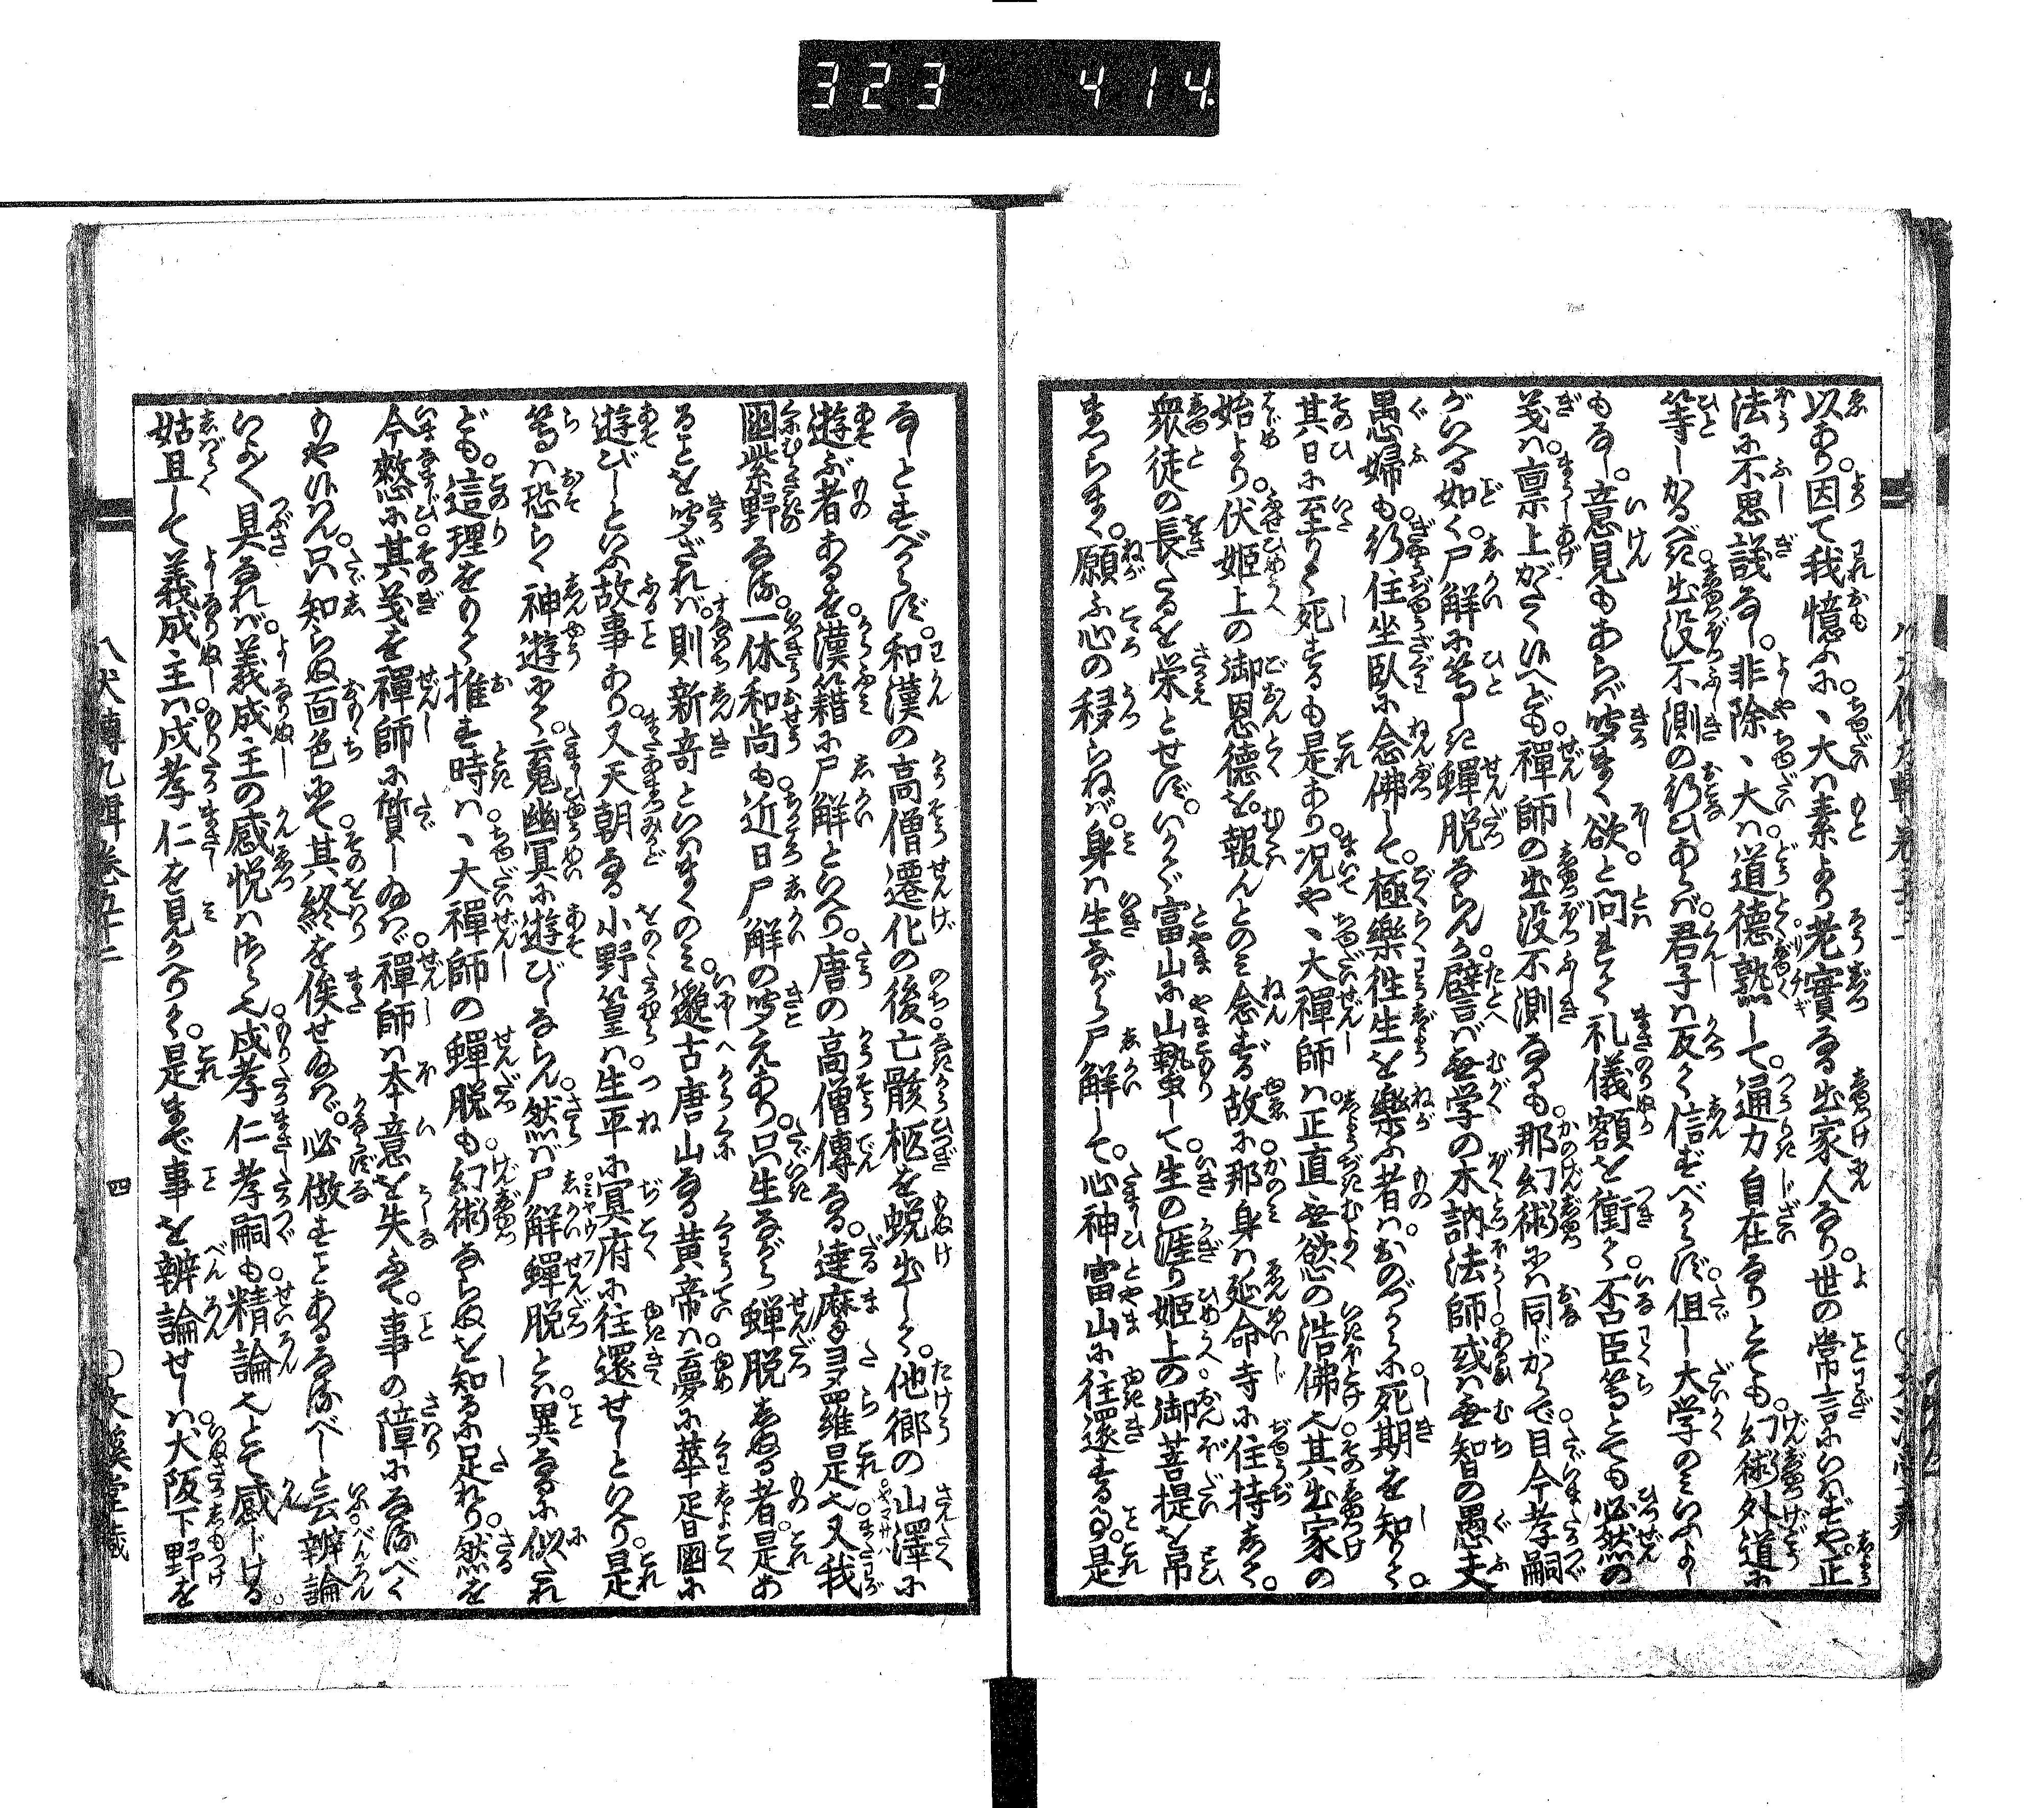 323 414
以あり。因て我憶ふに、大は素より老實なる出家人なり。世の常言にいはずや。正
法に不思議なし。非除、大は道徳熟して。通力自在なりとても。幻術外道に
等しかるべき出没不測の行ひあらば。君子は反て信ずべからず。但し大学のみいふよし
もなし。意見もあらば聞まく欲と問れて礼儀額を衝て。否臣等とても必然の
義は。禀上がたく候へども。禪師の出没不測なるも。那幻術には同じからで。目今孝嗣
がいへる如く。尸解に等しき蟬脱ならんか。譬ば無学の木訥法師。或は無智の愚夫
愚婦も。行住坐臥に念佛して。極樂徃生を樂ふ者は。おのづからに死期を知りて。
其日に至りて死するも是あり。况や、大禪師は。正直無慾の活佛也。其出家の
始より。伏姫上の御恩德を。報んとのみ念ずる故に。那身は延命寺に住持して。
衆徒の長たるを栄とせず。いかで富山に山蟄して。生の涯り姫上の御菩提を吊
まつらまく。願ふ心の移らねば。身は生ながら尸解して。心神富山に往還する。是
なしとすべからず。和漢の高僧遷化の後。亡骸柩を蛻出して。他郷の山澤に
遊ぶ者あるを。漢籍に尸解といへり。唐の高僧傳なる。達麼多羅是也。又我
國紫野なる。一休和尚も。近日尸解の聞えあり。只生ながら蟬脱しぬる者。是あ
ることを聞ざれば。則新奇といはまくのみ。邈古唐山なる黄帝は。夢に華胥國に
遊びしといふ故事あり。又天朝なる小野篁は。生平に冥府に往還せしといへり。是
等は恐らく神遊にて。䰟幽冥に遊びしならん。然ば尸解蟬脱とは。異なるに似たれ
ども。這理をもて推す時は。、大禪師の蟬脱も。幻術ならぬを知るに足れり。然るを
今憖に其義を禪師に質し給はば。禪師は本意を失ふて。事の障になるべく
もや候はん。只知らぬ面色にて。其終を俟せ給はば。必做すことあるなるべし。と云辨論
いよ〳〵具なれば。義成主の感悦はさら也。戌孝仁孝嗣も。精論也とて感じける。
姑且して義成主は。戌孝仁を見かへりて。是まで事を辨論せしは。犬阪下野を
八犬傳九輯卷五十二
四
文溪堂藏